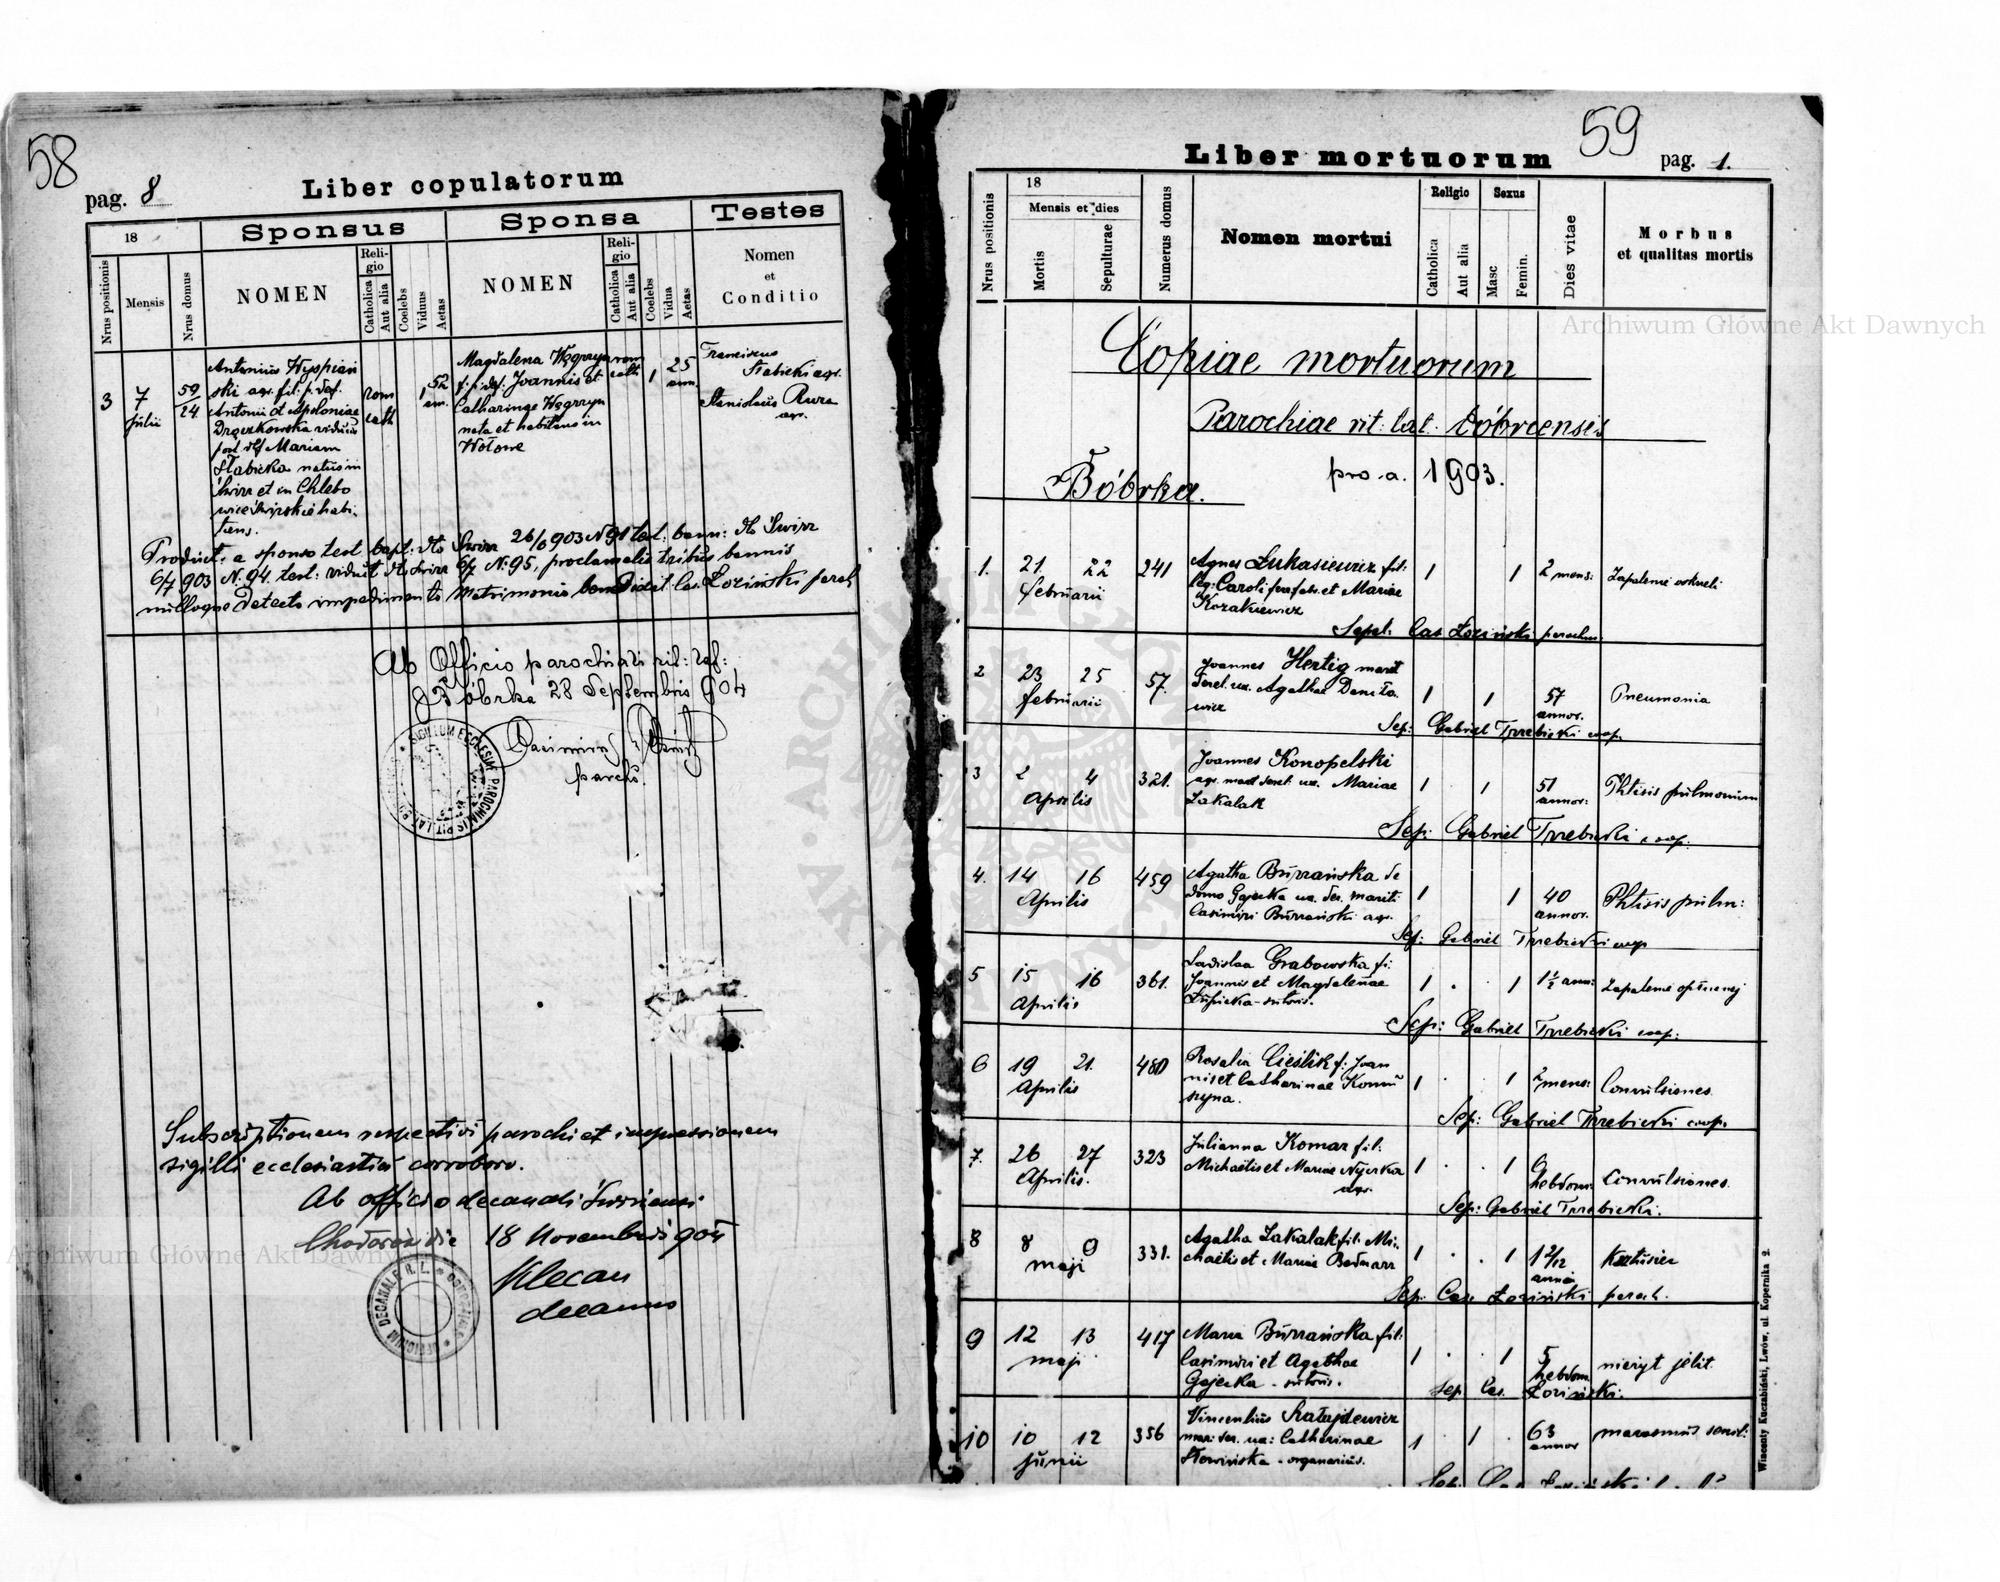 58
pag. 8
Liber copulatorum
18
Sponsus
Sponsa
Testes
Nrus positionis
Mensis
Nrus domus
NOMEN
Religio
Catholica
Aut alia
Coelebs
Viduus
Aetas
NOMEN
Religio
Catholica
Aut alia
Coelebs
Vidua
Aetas
Nomen
et
Conditio
3
7
julii
59
24
Antonius Wyspiań
ski agr. fil: p. def.
Antonii et Apoloniae
viduus
post def Mariam
Słabicka natus in
Świrz et in Chlebo
wice Świrskie habi-
tans.
rom
cath
1
52
an.
Magdalena Węgrzyn
f. p. def. Joannis et
Catharinae Węgrzyn
nata et habitans in
Wołowe
rom
cath
1
25
ann.
Franciscus
Słabicki agr.
Stanislaus Rura
agr.
Product: a sponso test bapt: dto Świrz 26/6 903 N 91 test: bann: dto Świrz
6/7 903 N. 94, test: viduit dto Świrz 6/7 N. 95, proclamatis tribus bannis
nulloque detecto impedimento Matrimonio benedixit Cas. Łoziński paroch
Ab Officio parochiali rit: lat:
Bóbrka 28 Septembris 904
parchs.
SIGILLUM ECCLESIAE PAROCHIALIS RIT. LAT.
Subscriptionem respectivi parochi et impressionem
sigilli ecclesiastici corroboro.
Ab officio decanali Świrzensi
Chodorów die 18 Novembris 904
Klecan
decanus
OFFICIUM DECANALE R. L.
59
Liber mortuorum
pag. 1.
Nrus positionis
18
Mensis et dies
Mortis
Sepulturae
Numerus domus
Nomen mortui
Religio
Catholica
Aut alia
Sexus
Masc
Femin.
Dies vitae
Morbus
et qualitas mortis
Copiae mortuorum
Parochiae rit: lat. Bóbrcensis
pro a. 1903.
Bóbrka.
1. 21 22 241 Agnes Łukasiewicz fil: 1 1 2 mens: Zapalenie oskrzeli
februarii leg: Caroli et Mariae
Kozakiewicz
Sepel: Cas Łoziński parochus
2 23 25 57. Joannes Hertig marit 1 1 57 Pneumonia
februarii derel. ux. Agathae Daniło- annor.
wicz
Sep: Gabriel Trzebicki coop.
3 2 4 321. Joannes Konopelski 1 1 51 Phtisis pulmonum
Aprilis agr. marit derel: ux. Mariae annor:
Zakalak
Sep: Gabriel Trzebicki coop.
4. 14 16 459 Agatha Burzańska de 1 1 40 Phtisis pulm:
Aprilis domo Gajecka ux. der. mariti annor.
Casimiri Burzański agr.
Sep: Gabriel Trzebicki coop
5 15 16 361. Ladislaa Grabowska fi: 1 . 1 1½ ann: Zapalenie opłucnej
Aprilis Joannis et Magdalenae
Łupicka - sutoris.
Sep: Gabriel Trzebicki coop:
6 19 21. 480 Rosalia Cieślik f: Joan 1 . 1 2 mens: Convulsiones
Aprilis nis et Catharinae Konou
szyna.
Sep: Gabriel Trzebicki coop.
7. 26 27 323 Julianna Komar fil: 1 . . 1 9 hebdom: Convulsiones.
Aprilis. Michaëlis et Mariae
agr.
Sep: Gabriel Trzebicki.
8 8 9 331. Agatha Zakalak fil: Mi- 1 . . 1 1 2/12 Krztusiec
maji chaëlis et Mariae Bednarz
Sep. Cas. Łoziński paroch.
9 12 13 417 Maria Burzańska fil: 1 . . 1 5 hebdom. nieżyt jelit.
maji Casimiri et Agathae
Gajecka - sutoris.
Sep. Cas. Łoziński.
10 10 12 356 Vincentius Ratajdewicz 1 . 1 63 marasmus senil:
junii mar: der. ux: Catharinae annor
Słowińska - organarius.
Wincenty Kuczabiński, Lwów, ul. Kopernika 2.
Archiwum Główne Akt Dawnych
Archiwum Główne Akt Dawnych
ARCHIWUM GŁÓWNE AKT DAWNYCH